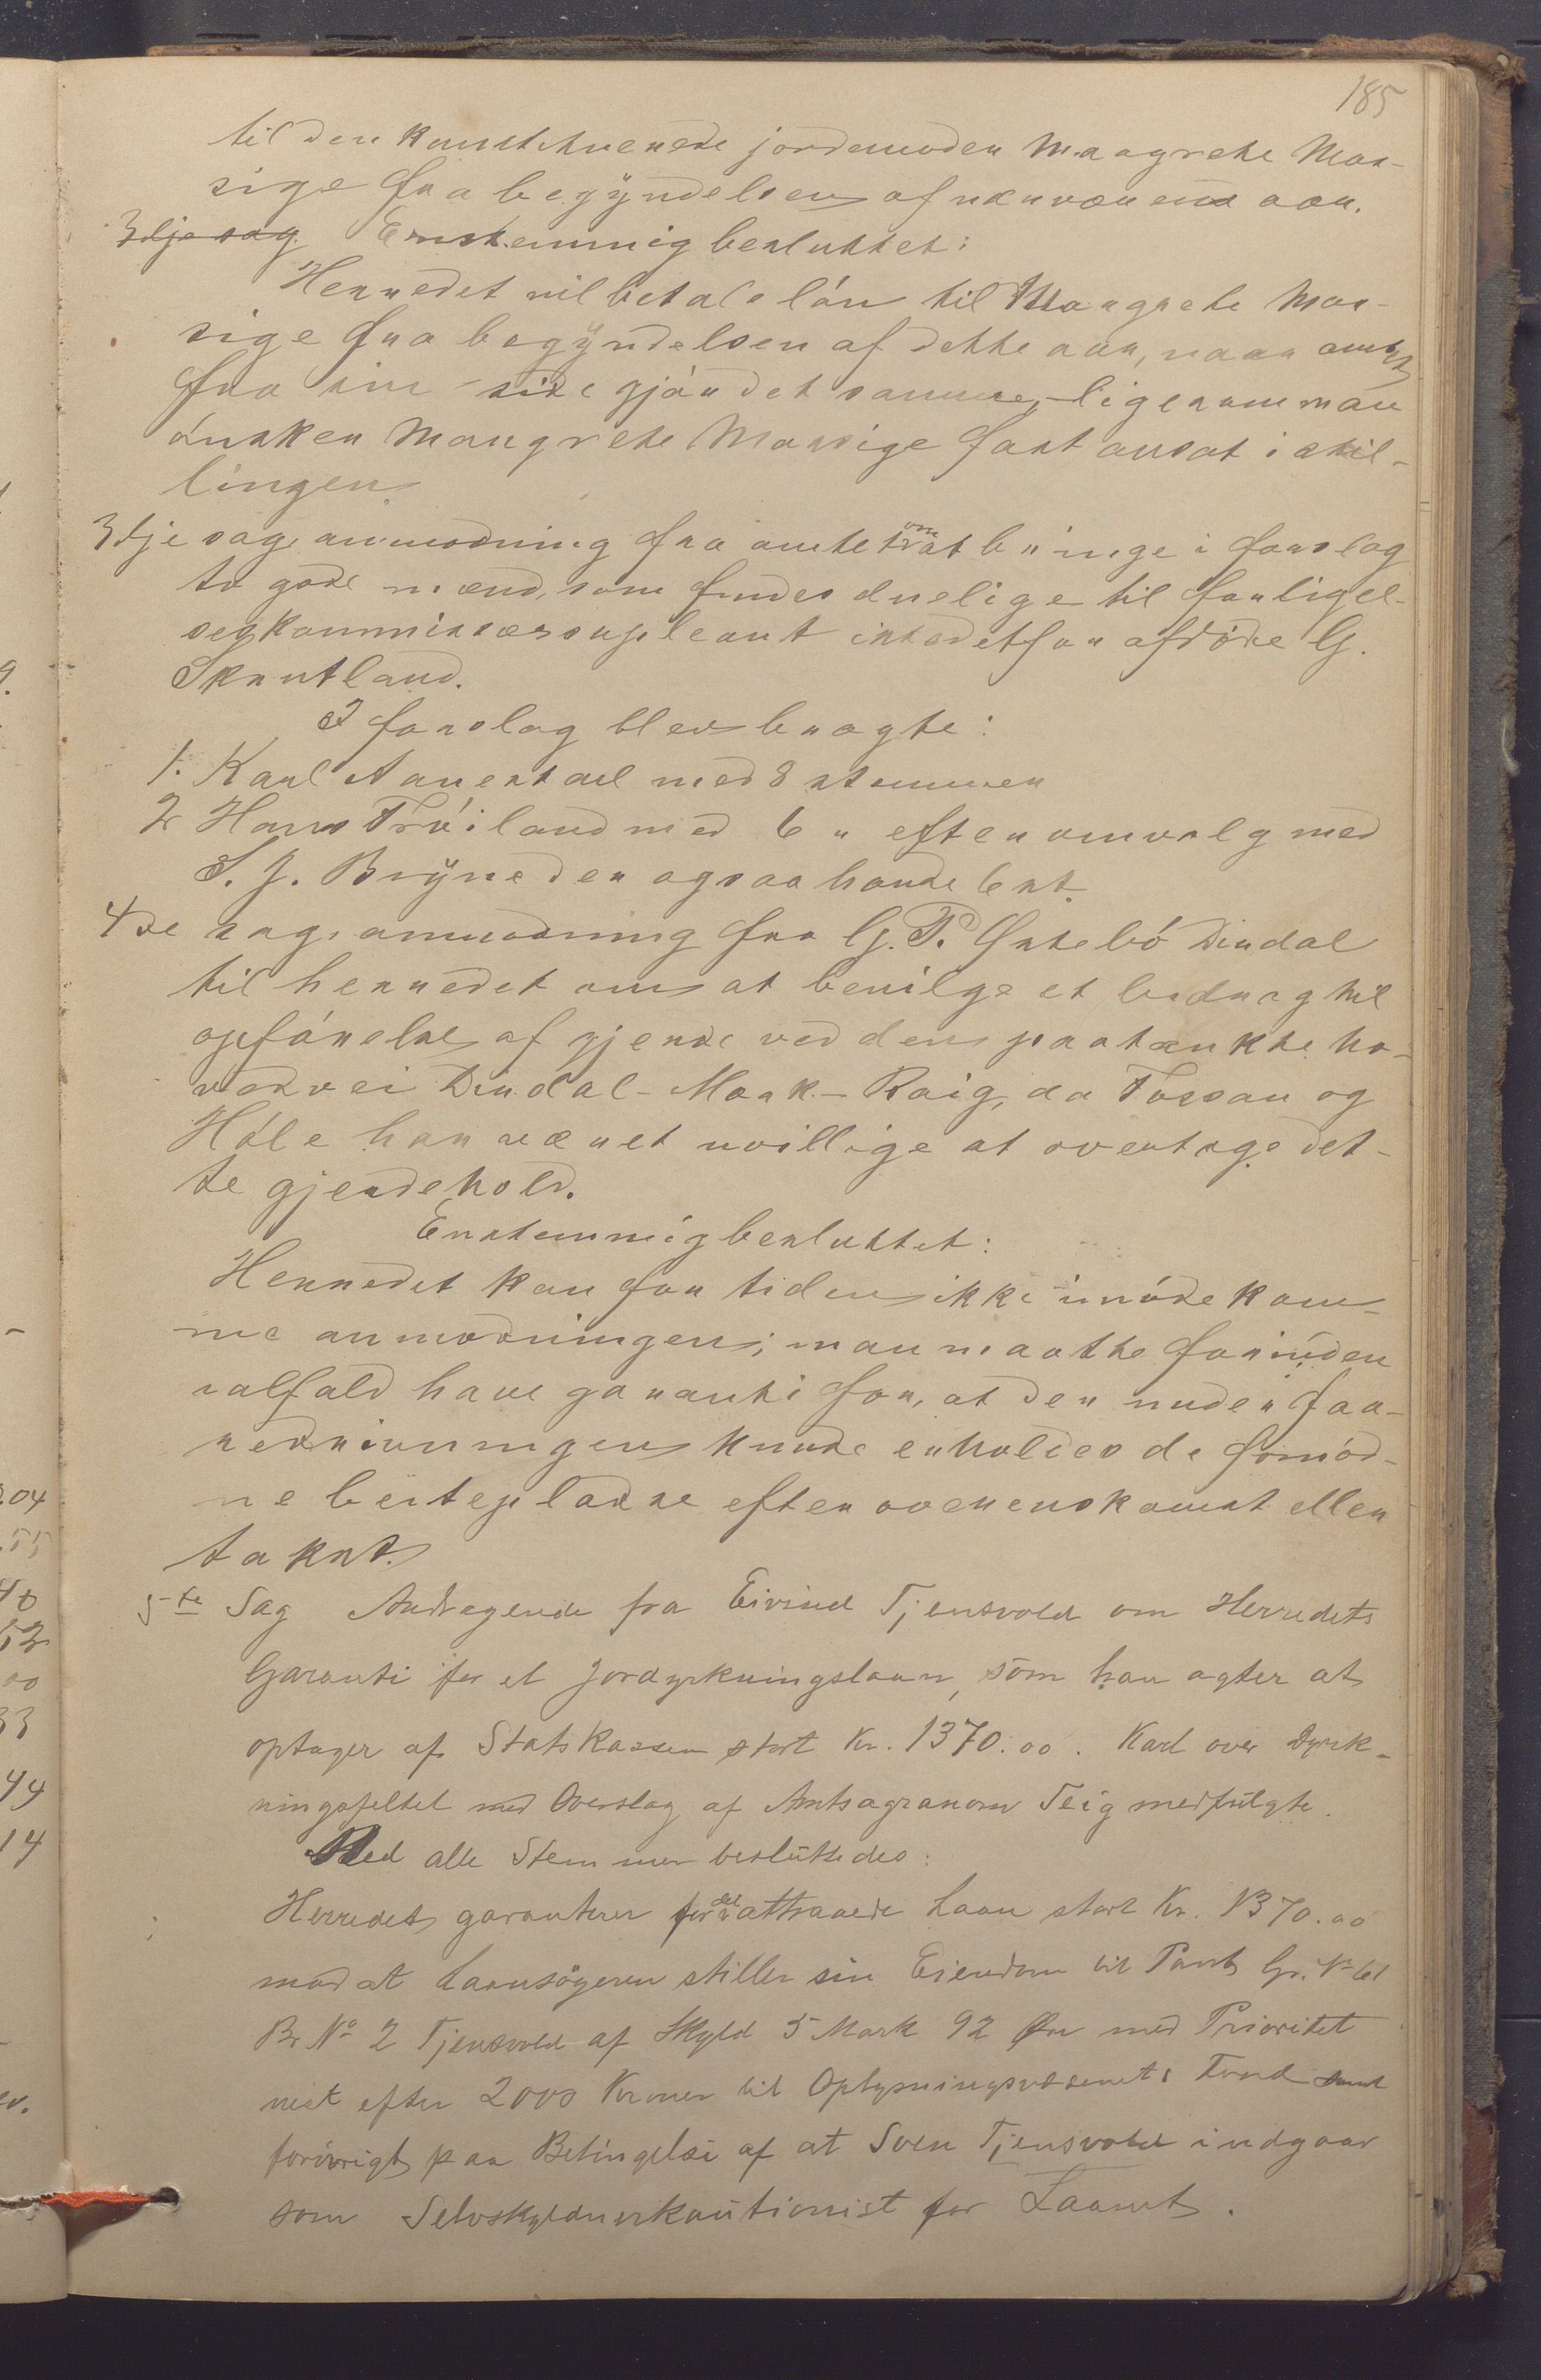 185
til den konstituerede jordemoder Maagrete Mos-
sige fra begyndelsen af nærværende aar.
3dje sag. Enstemmig besluttet:
Herredet vil betale lön til Maagrete Mos-
sige fra begyndelsen af dette aar, naar amtet
fra sin side gjör det samme, ligesom man
önsker Maagrete Mossige fast ansat i stil-
lingen
3dje sag, anmodning fra amtet om at bringe i forslag
to gode mænd, som findes duelige til forligel-
seskommissærsupleant istedetfor afdöde G.
Skrutland.
I forslag blev bragte:
1. Karl Aarestad med 8 stemmer
2 Hans Fröiland med 6 " efter omvalg med
S. J. Bryne der ogsaa havde 6 st.
4de sag, anmodning fra G. P. Östebö Dirdal
til herredet om at bevilge et bidrag til
opförelse af gjerde ved den paatænkte ho-
vedvei Dirdal-Mosk.-Raig, da Fossan og
Höle har været uvillige at overtage det-
te gjerdehold.
Enstemmig besluttet:
Herredet kan for tiden ikke imödekom-
me anmodningen; man maatte forinden
ialfald have garanti for, at den under faa-
redrivningen kunde erholdes de fornöd-
ne beitepladse efter overenskomst eller
takst.
5-te Sag Andragende fra Eivind Tjensvold om Herredets
Garanti for et Jordyrkningslaan, som han agter at
optager af Statskassen stort Kr. 1370.00. Kart over Dyrk-
ningsfeltet med Overslag af Amtsagronom Teig medfulgte.
Med alle Stemmer besluttedes:
Herredet garanterer for det attraaede Laan stort Kr. 1370.00
mod at Laansögeren stiller sin Eiendom til Pant Gr. No 61
Br No 2 Tjensvold af Skyld 5 Mark 92 Öre med Prioritet
nest efter 2000 Kroner til Oplysningsvæsenets Fond samt
forövrigt paa Betingelse af at Sven Tjensvold indgaar
som Selvskyldnerkautionist for Laanet.